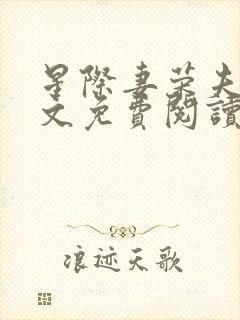 星際妻荣夫
文免費閱讀
浪迹天歌